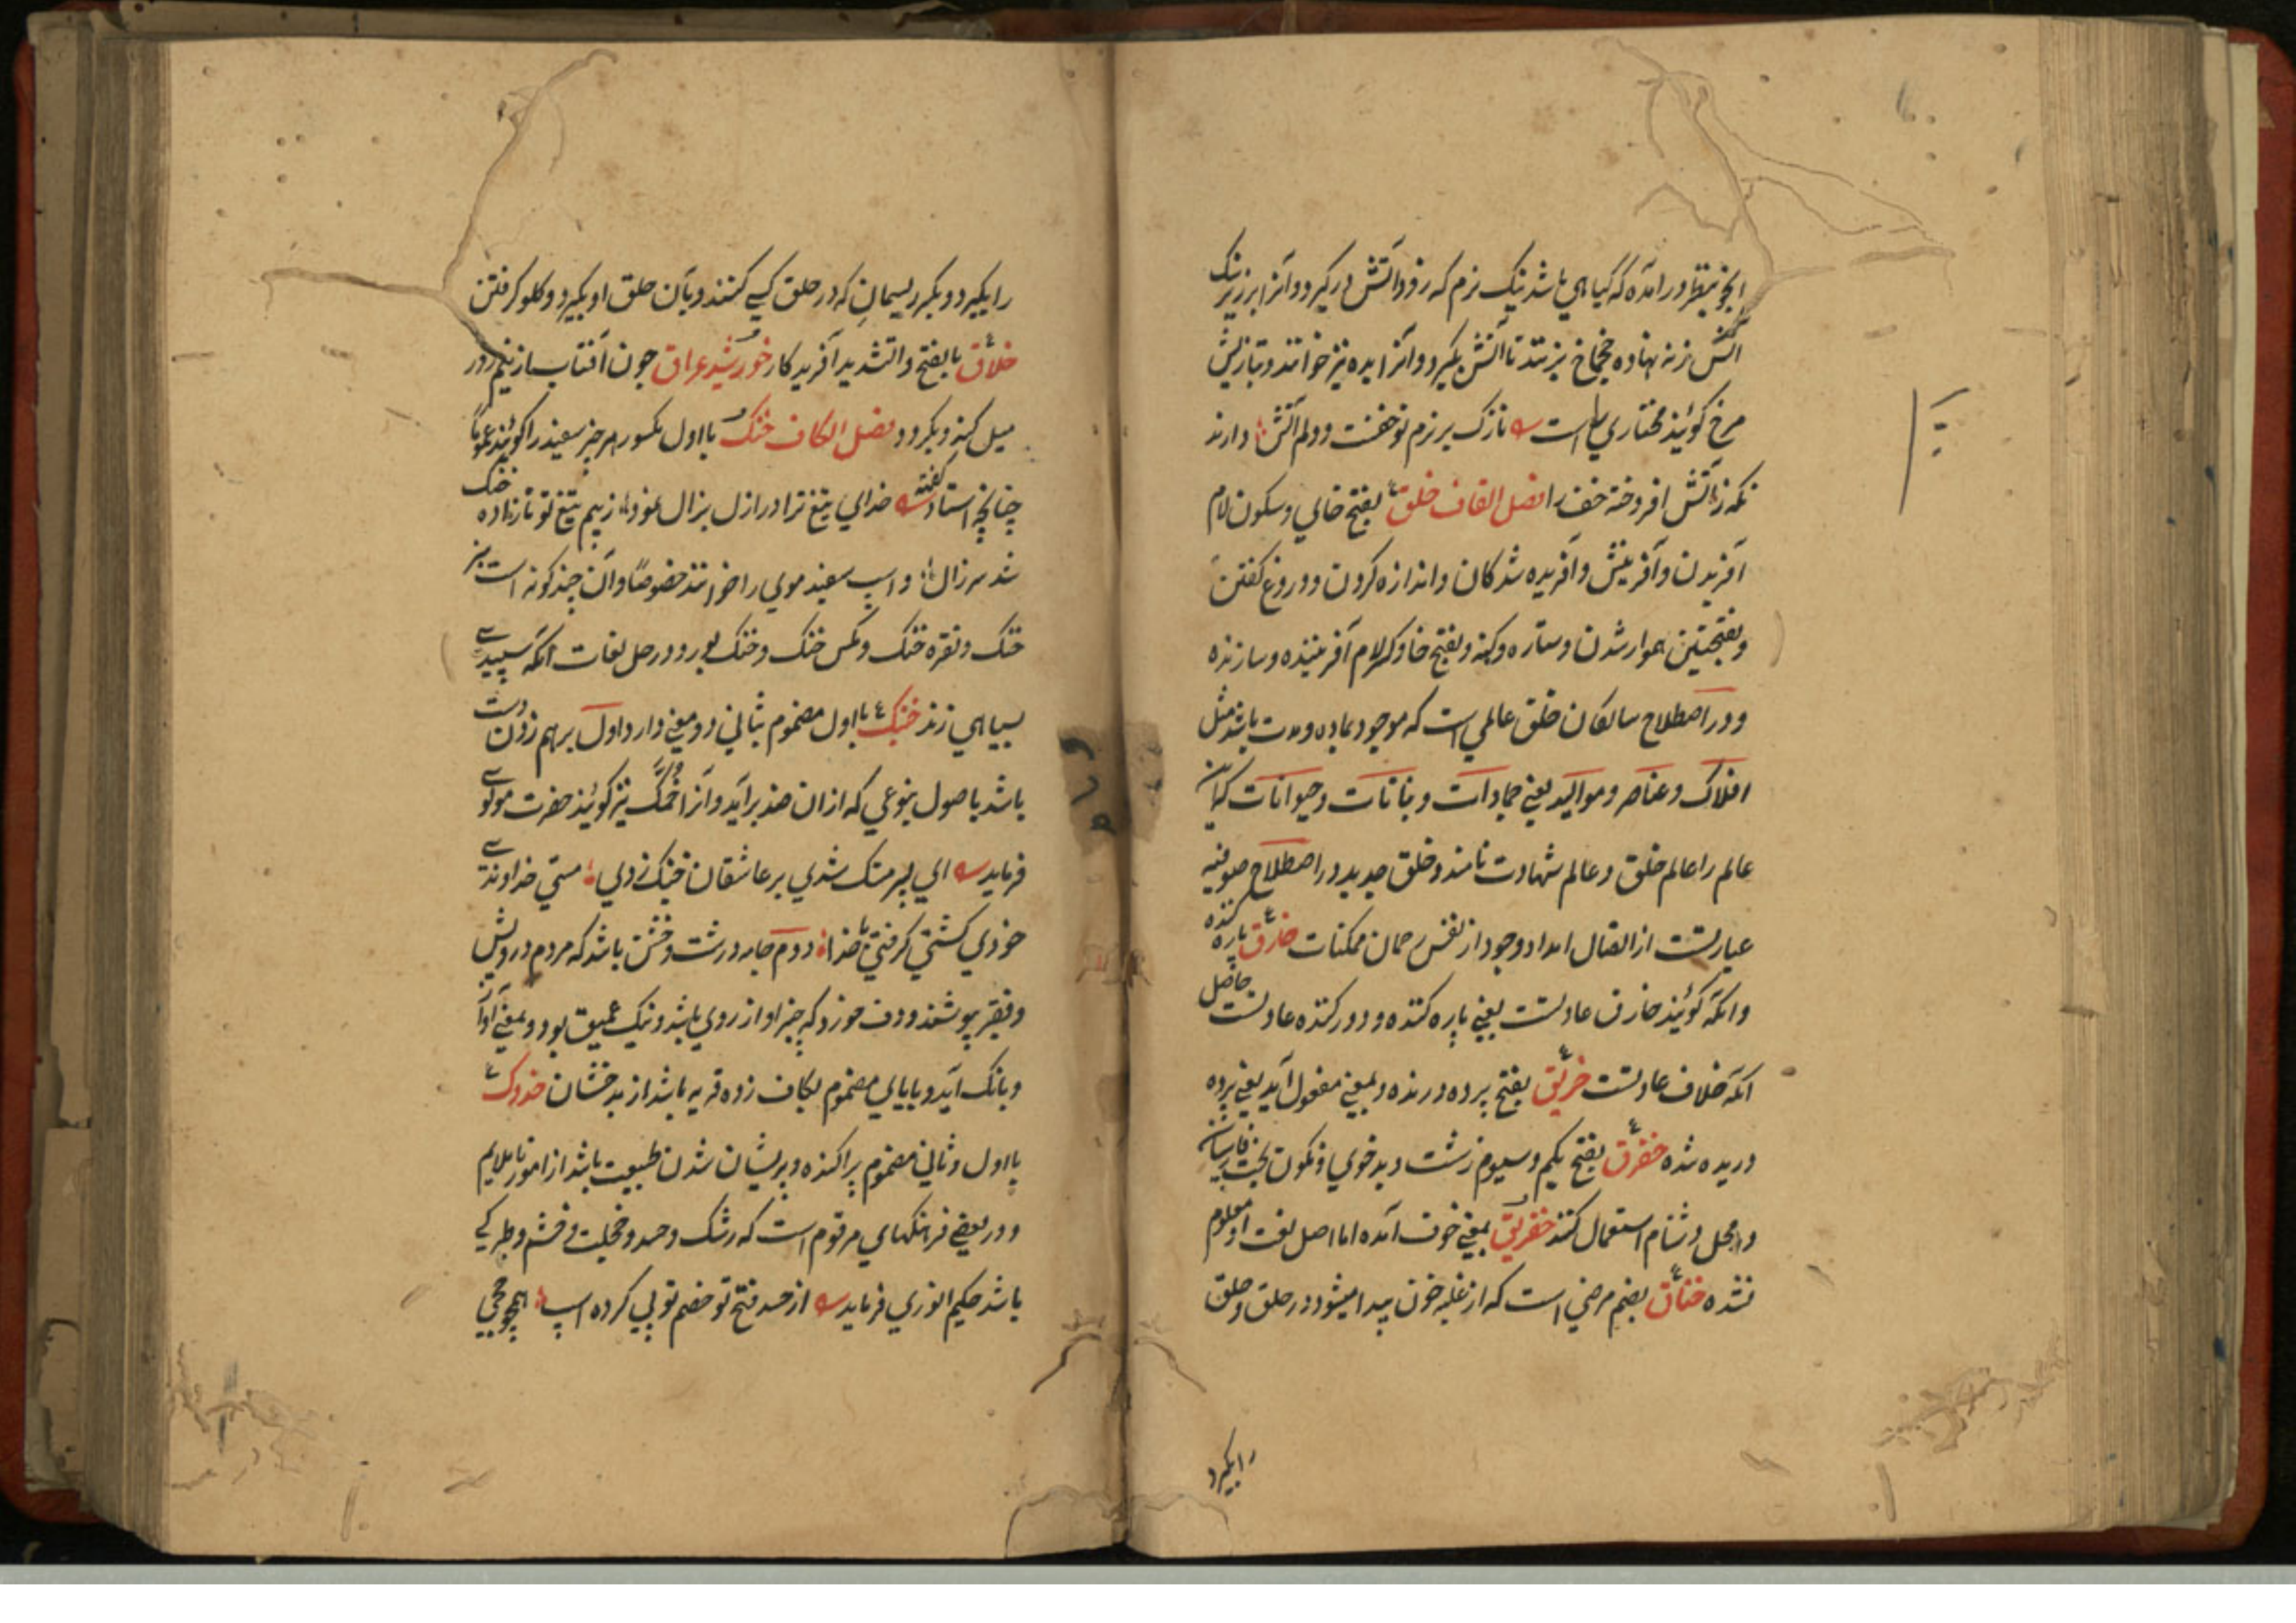 آنچه بنظر درآمده که گیاهی باشد نیک نرم که زود آتش درگیرد و آنرا بر زیر
آتش زنه نهاده چخماخ بزنند تا آتش بگیرد و آنرا پده نیز خوانند و بتازیش
مرخ گویند مختاری راست نازک برزم تو خفت و دلم آتش دارند
آتش افروخته خف را فصل القاف خلق بفتح خای و سکون لام
آفریدن و آفرینش و آفریده شدگان و اندازه کردن و دروغ گفتن
و بفتحتین هموار شدن و ستاره و کهنه و بفتح خا و کسر لام آفریننده و سازنده
و در اصطلاح سالکان خلق عالمی است که موجود بماده و مدت باشد مثل
افلاک و عناصر و موالید یعنی جمادات و نباتات و حیوانات که این
عالم را عالم خلق و عالم شهادت نامند و خلق جدید در اصطلاح صوفیه
عبارتست از اتصال امداد وجود از نفس رحمان ممکنات خارق پاره کننده
و آنکه گویند خارق عادتست یعنی پاره کننده و دور کننده عادتست حاصل
آنکه خلاف عادتست خریق بفتح پرده درنده و بمعنی مفعول آید یعنی پرده
دریده شده خفرق بفتح یکم و سیوم زشت و بدخوی و نکون بخت فارسیان
در محل دشنام استعمال کنند خفریق بمعنی خوف آمده اما اصل لغت او معلوم
نشده خناق بضم مرضی است که از غلبه خون پیدا میشود در حلق و حلق
را بگیرد
را بگیرد و بگیرد ریسمان که در حلق کسی کنند و بآن حلق او بگیرد و گلو گرفتن
خلاق بالفتح و التشدید آفریدکار خورشید عراق چون آفتاب از نیم روز
میل کند و بگردد فصل الکاف خنک با اول مکسور هر چیز سفید را گویند عموماً
چنانچه استاد گفته خدای تیغ ترا در ازل بزال نمود ز بیم تیغ تو نازاده خنک
شد سر زال و اسپ سفید موی را خوانند خصوصاً و آن چند گونه است سبز
خنک و نقره خنک و مگس خنک و خنک بور و در حل لغات آنکه سپیدی
بسیاهی زند خنبک با اول مضموم بثانی دو معنی دارد اول برهم زدن دست
باشد باصول بنوعی که از آن صدا برآید و آنرا خمک نیز گویند حضرت مولوی
فرماید ای پسر منک شدی بر عاشقان خنبک زدی مستی خداوندی
خودی کشتی گرفتی با خدا دوم جامه درشت و خشن باشد که مردم درویش
و فقیر پوشند و دف خورد که چنبر او از روی باشد و نیک عمیق بود و بمعنی آواز
و بانک آید و بابای مضموم بکاف زده قریه باشد از بدخشان خدوک
با اول و ثانی مضموم پراکنده و پریشان شدن طبیعت باشد از امور ناملایم
و در بعضی فرهنگهای مرقوم است که رشک و حسد و خجلت و خشم و طیرگی
باشد حکیم انوری فرماید از حسد فتح تو خصم تو پی کرده اسپ همچو جحی